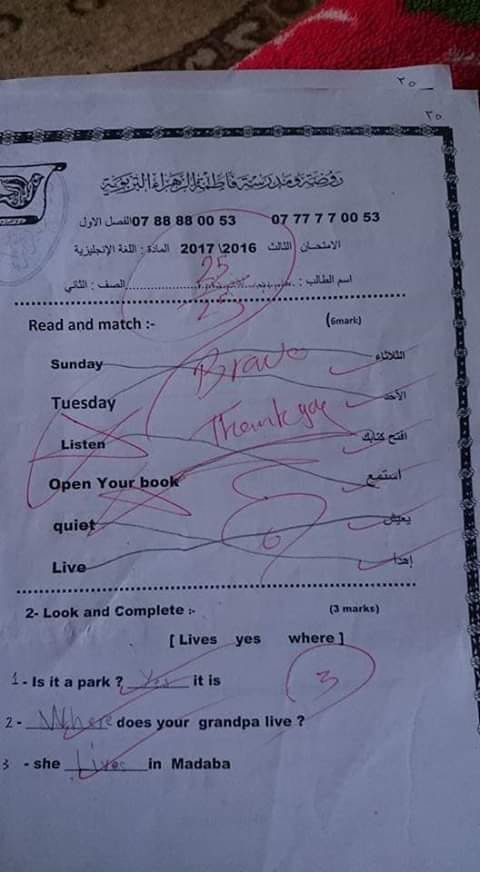 ٣٥
٣٥
روضة ومدرسة فاطمة الزهراء التربوية
07 77 77 7 00 53 07 88 88 00 53 الفصل الاول
الامتحان الثالث 2016\ 2017 المادة : اللغة الإنجليزية
اسم الطالب : الصف : الثاني
25
25
Read and match :- (6mark)
Sunday الثلاثاء
Tuesday الأحد
Listen افتح كتابك
Open Your book استمع
quiet يعيش
Live إهدأ
Bravo
Thank you
6
2- Look and Complete :- (3 marks)
[ Lives yes where ]
1 - Is it a park ? Yes it is
2 - Where does your grandpa live ?
3 - she Lives in Madaba
3